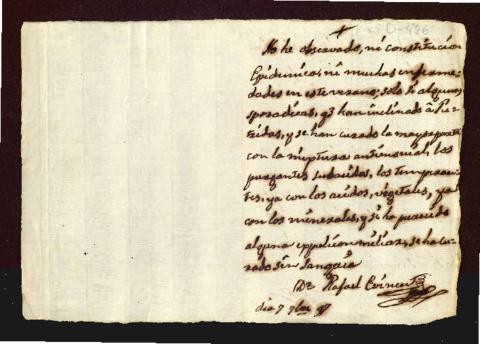 No he observado, ni constitucion
Epidemica, ni muchas enferme-
dades en este verano; solo si algunas
sporadicas, q.e han inclinado â Pu-
tridas, y se han curado la mayor parte
con la mixtura antimonial, los
purgantes subacidos, los temperan-
tes, ya con los acidos, vegetales, ya
con los minerales, y si ha parecido
alguna erupcion miliar, se ha cu-
rado sin sangria
D.r Rafael
dia 7 7bre